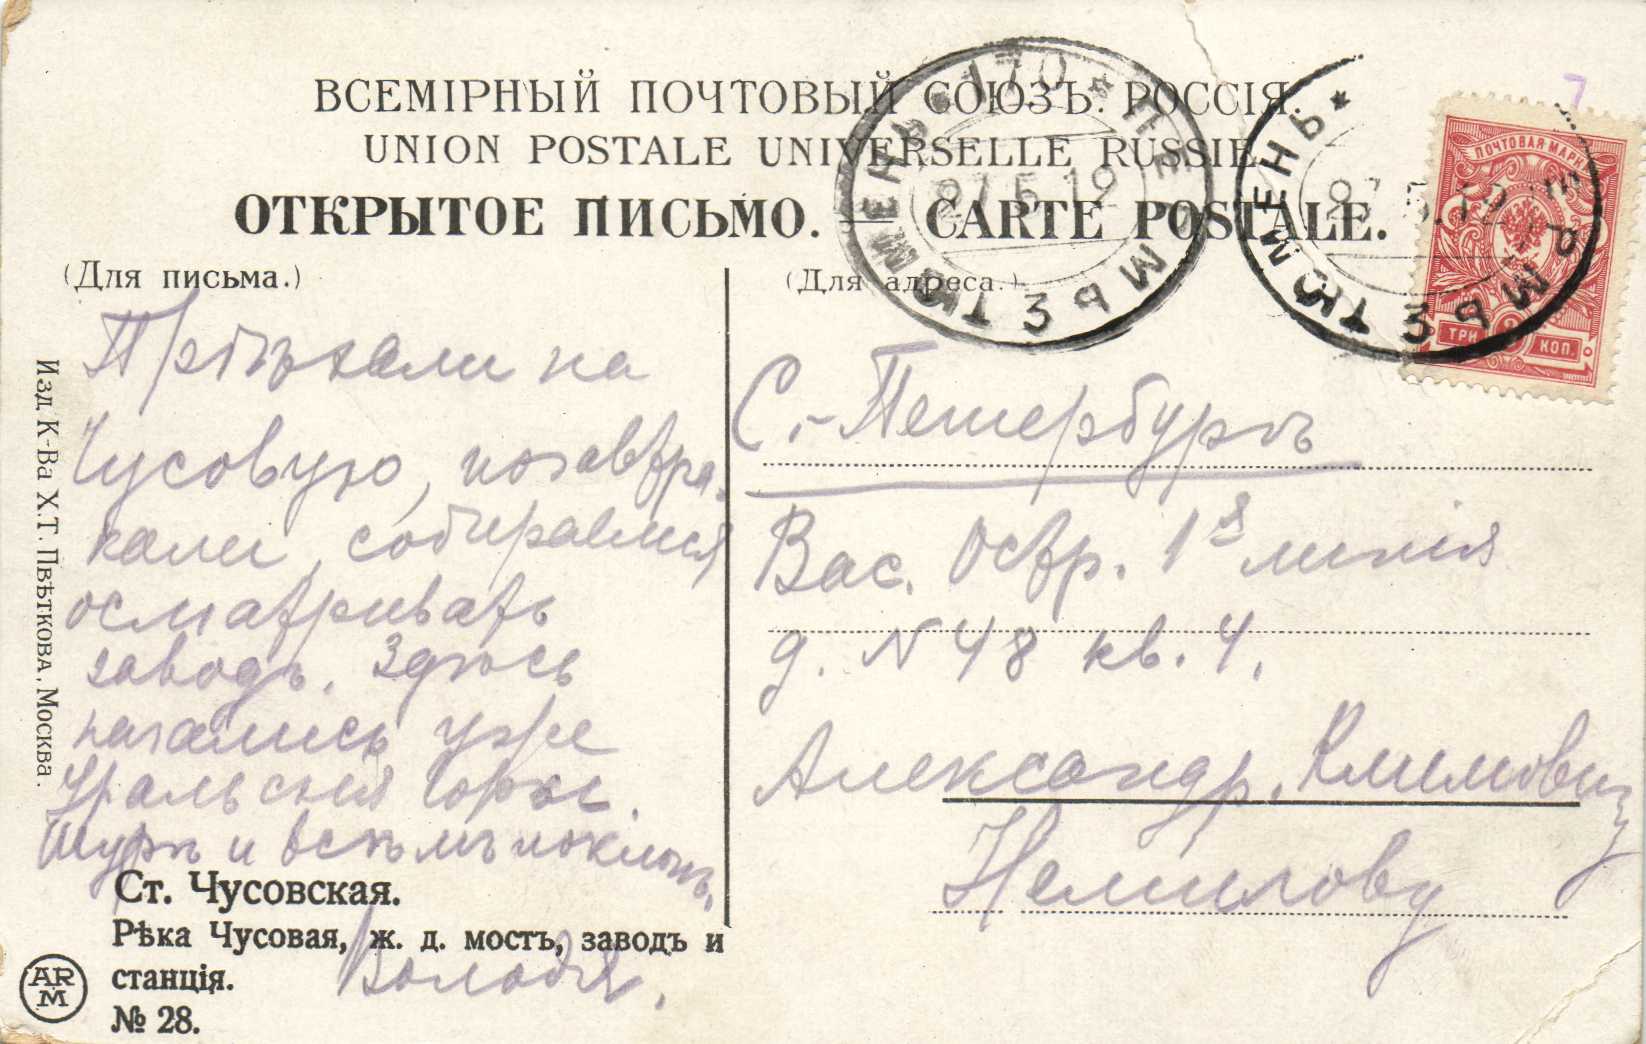 ВСЕМІРНЫЙ ПОЧТОВЫЙ СОЮЗЪ. РОССІЯ.
UNION POSTALE UNIVERSELLE RUSSIE
ОТКРЫТОЕ ПИСЬМО. — CARTE POSTALE.
(Для письма.)
Пріѣхали на
Чусовую, позавтра-
кали, собираемся
осматривать
заводъ. Здѣсь
начались уже
Уральскія Горы.
Шурѣ и всѣмъ поклонъ.
Володя.
Ст. Чусовская.
Рѣка Чусовая, ж. д. мостъ, заводъ и
станція.
№ 28.
ARM
Изд К-Ва Х.Т. Цвѣткова, Москва.
(Для адреса.)
С.-Петербургъ
Вас. Остр. 1я линія
д. N 48 кв. 4.
Александр. Климовичу
Немилову
ПЕРМЬ ТЮМЕНЬ * 170 *
27.5.12
ПЕРМЬ ТЮМЕНЬ *
27.5.12
ПОЧТОВАЯ МАРКА
ТРИ 3 КОП.
7